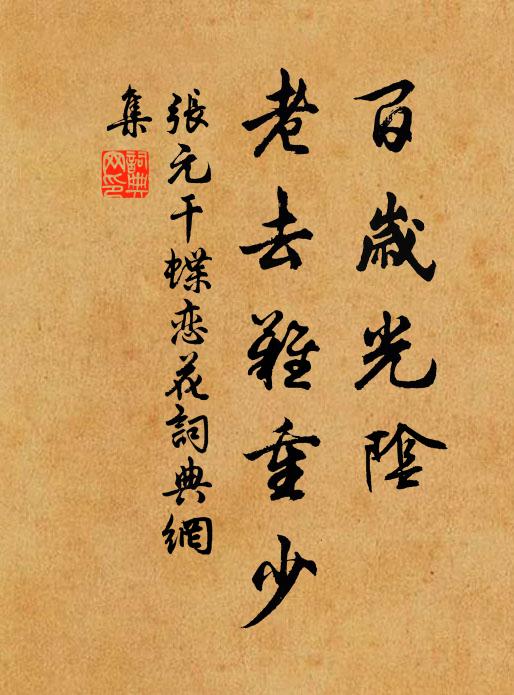 百歲光陰
老去難重少
張元干蝶恋花詞典網
集
詞典
网印